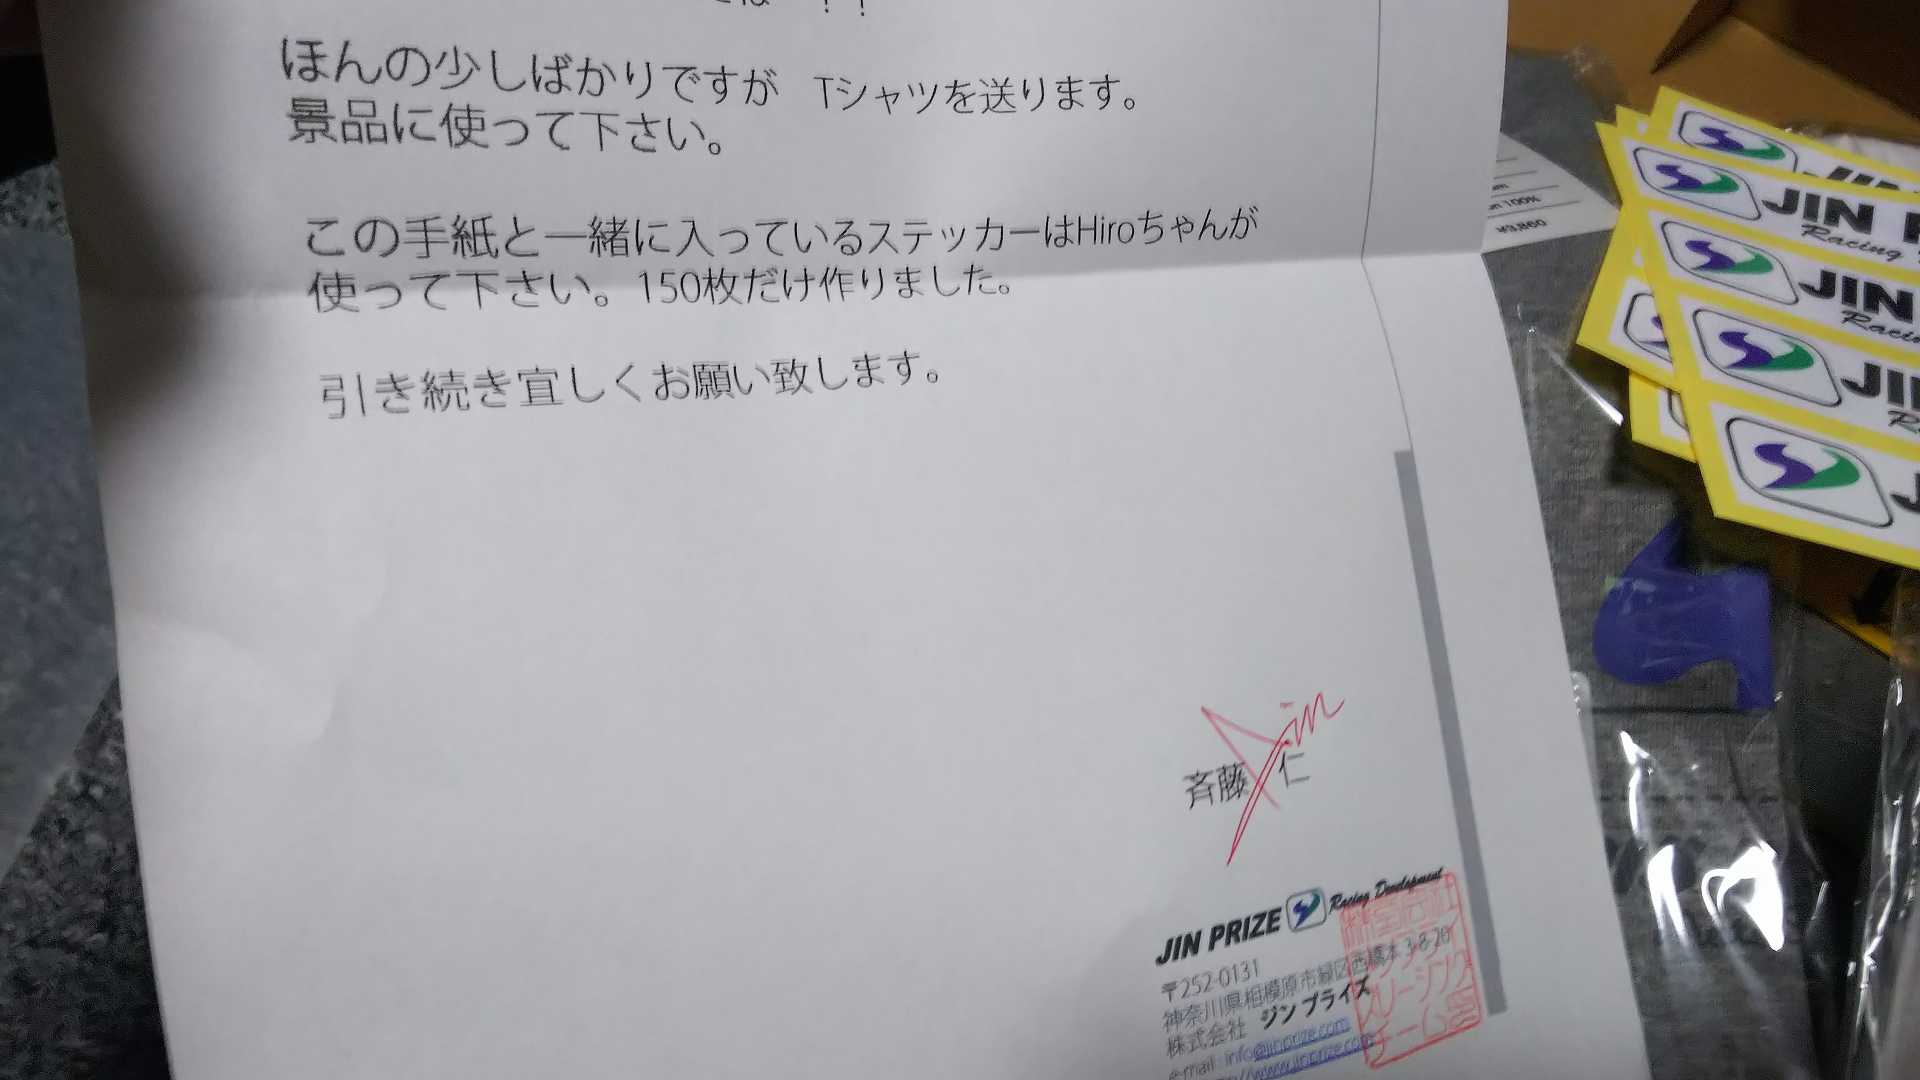 ほんの少しばかりですが Tシャツを送ります。
景品に使って下さい。
この手紙と一緒に入っているステッカーはHiroちゃんが
使って下さい。150枚だけ作りました。
引き続き宜しくお願い致します。
Jin
斉藤 仁
JIN PRIZE Racing Development
〒252-0131
神奈川県相模原市緑区西橋本3-8-20
株式会社 ジンプライズ
e-mail : info@jinprize.com
www.jinprize.com
100%
¥3,860
JIN
JIN
Racing
JIN
Racing
JIN